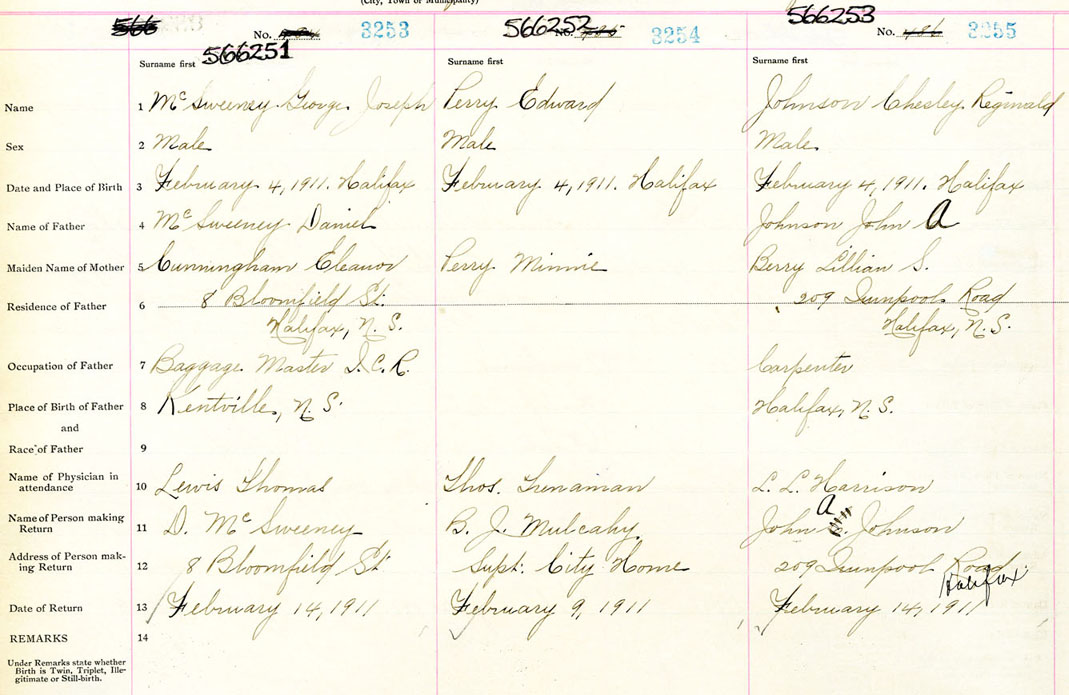 (City, Town or Municipality)
566 No. 3253 566252 No. 3254 566253 No. 3255
566251
Surname first Surname first Surname first
Name 1 McSweeney George Joseph Perry Edward Johnson Chesley Reginald
Sex 2 Male Male Male
Date and Place of Birth 3 February 4, 1911. Halifax February 4, 1911. Halifax February 4, 1911. Halifax
Name of Father 4 McSweeney Daniel Johnson John A
Maiden Name of Mother 5 Cunningham Eleanor Perry Minnie Berry Lillian S.
Residence of Father 6 8 Bloomfield St. 209 Road
Halifax, N. S. Halifax, N. S.
Occupation of Father 7 Baggage Master I. C. R. Carpenter
Place of Birth of Father 8 Kentville, N. S. Halifax, N. S.
and
Race of Father 9
Name of Physician in
attendance 10 Lewis Thomas Thos. Trenaman L. L. Harrison
Name of Person making
Return 11 D. McSweeney B. J. Mulcahy John A Johnson
Address of Person mak-
ing Return 12 8 Bloomfield St Supt. City Home 209 Road
Halifax
Date of Return 13 February 14, 1911 February 9, 1911 February 14, 1911
REMARKS 14
Under Remarks state whether
Birth is Twin, Triplet, Ille-
gitimate or Still-birth.